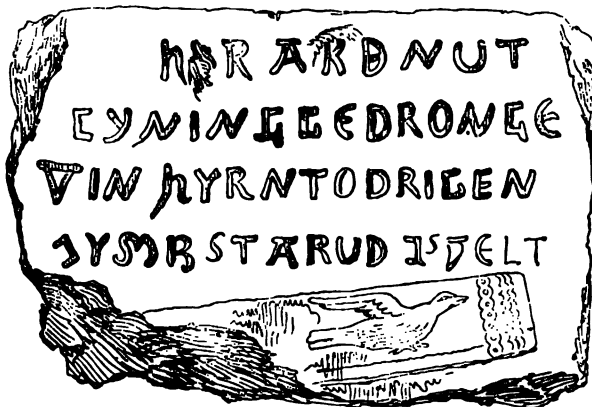 HER ARDNUT
CYNINGGEDRONGE
VINHYRNTODRIGEN
JYMBSTARUD ISVELT